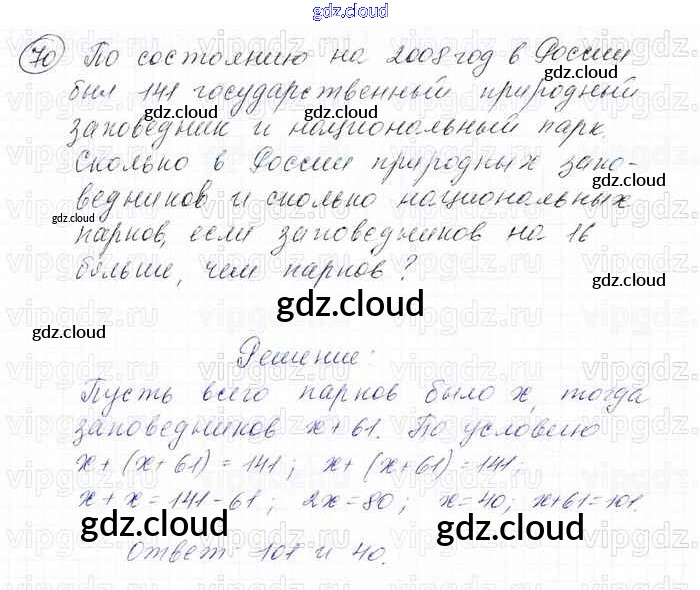 gdz.cloud
70 По состоянию на 2008 год в России
был 141 государственный природный
заповедник и национальный парк.
Сколько в России природных запо-
ведников и сколько национальных
парков, если заповедников на 16
больше, чем парков?
Решение:
Пусть всего парков было x, тогда
заповедников x+61. По условию
x+(x+61)=141; x+(x+61)=141;
x+x=141-61; 2x=80; x=40; x+61=101.
Ответ: 101 и 40.
gdz.cloud
gdz.cloud
gdz.cloud
gdz.cloud
gdz.cloud
gdz.cloud
gdz.cloud
gdz.cloud
gdz.cloud
gdz.cloud